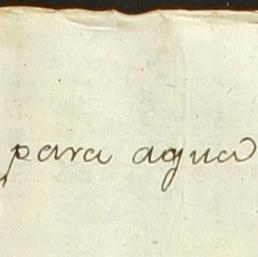 para agua